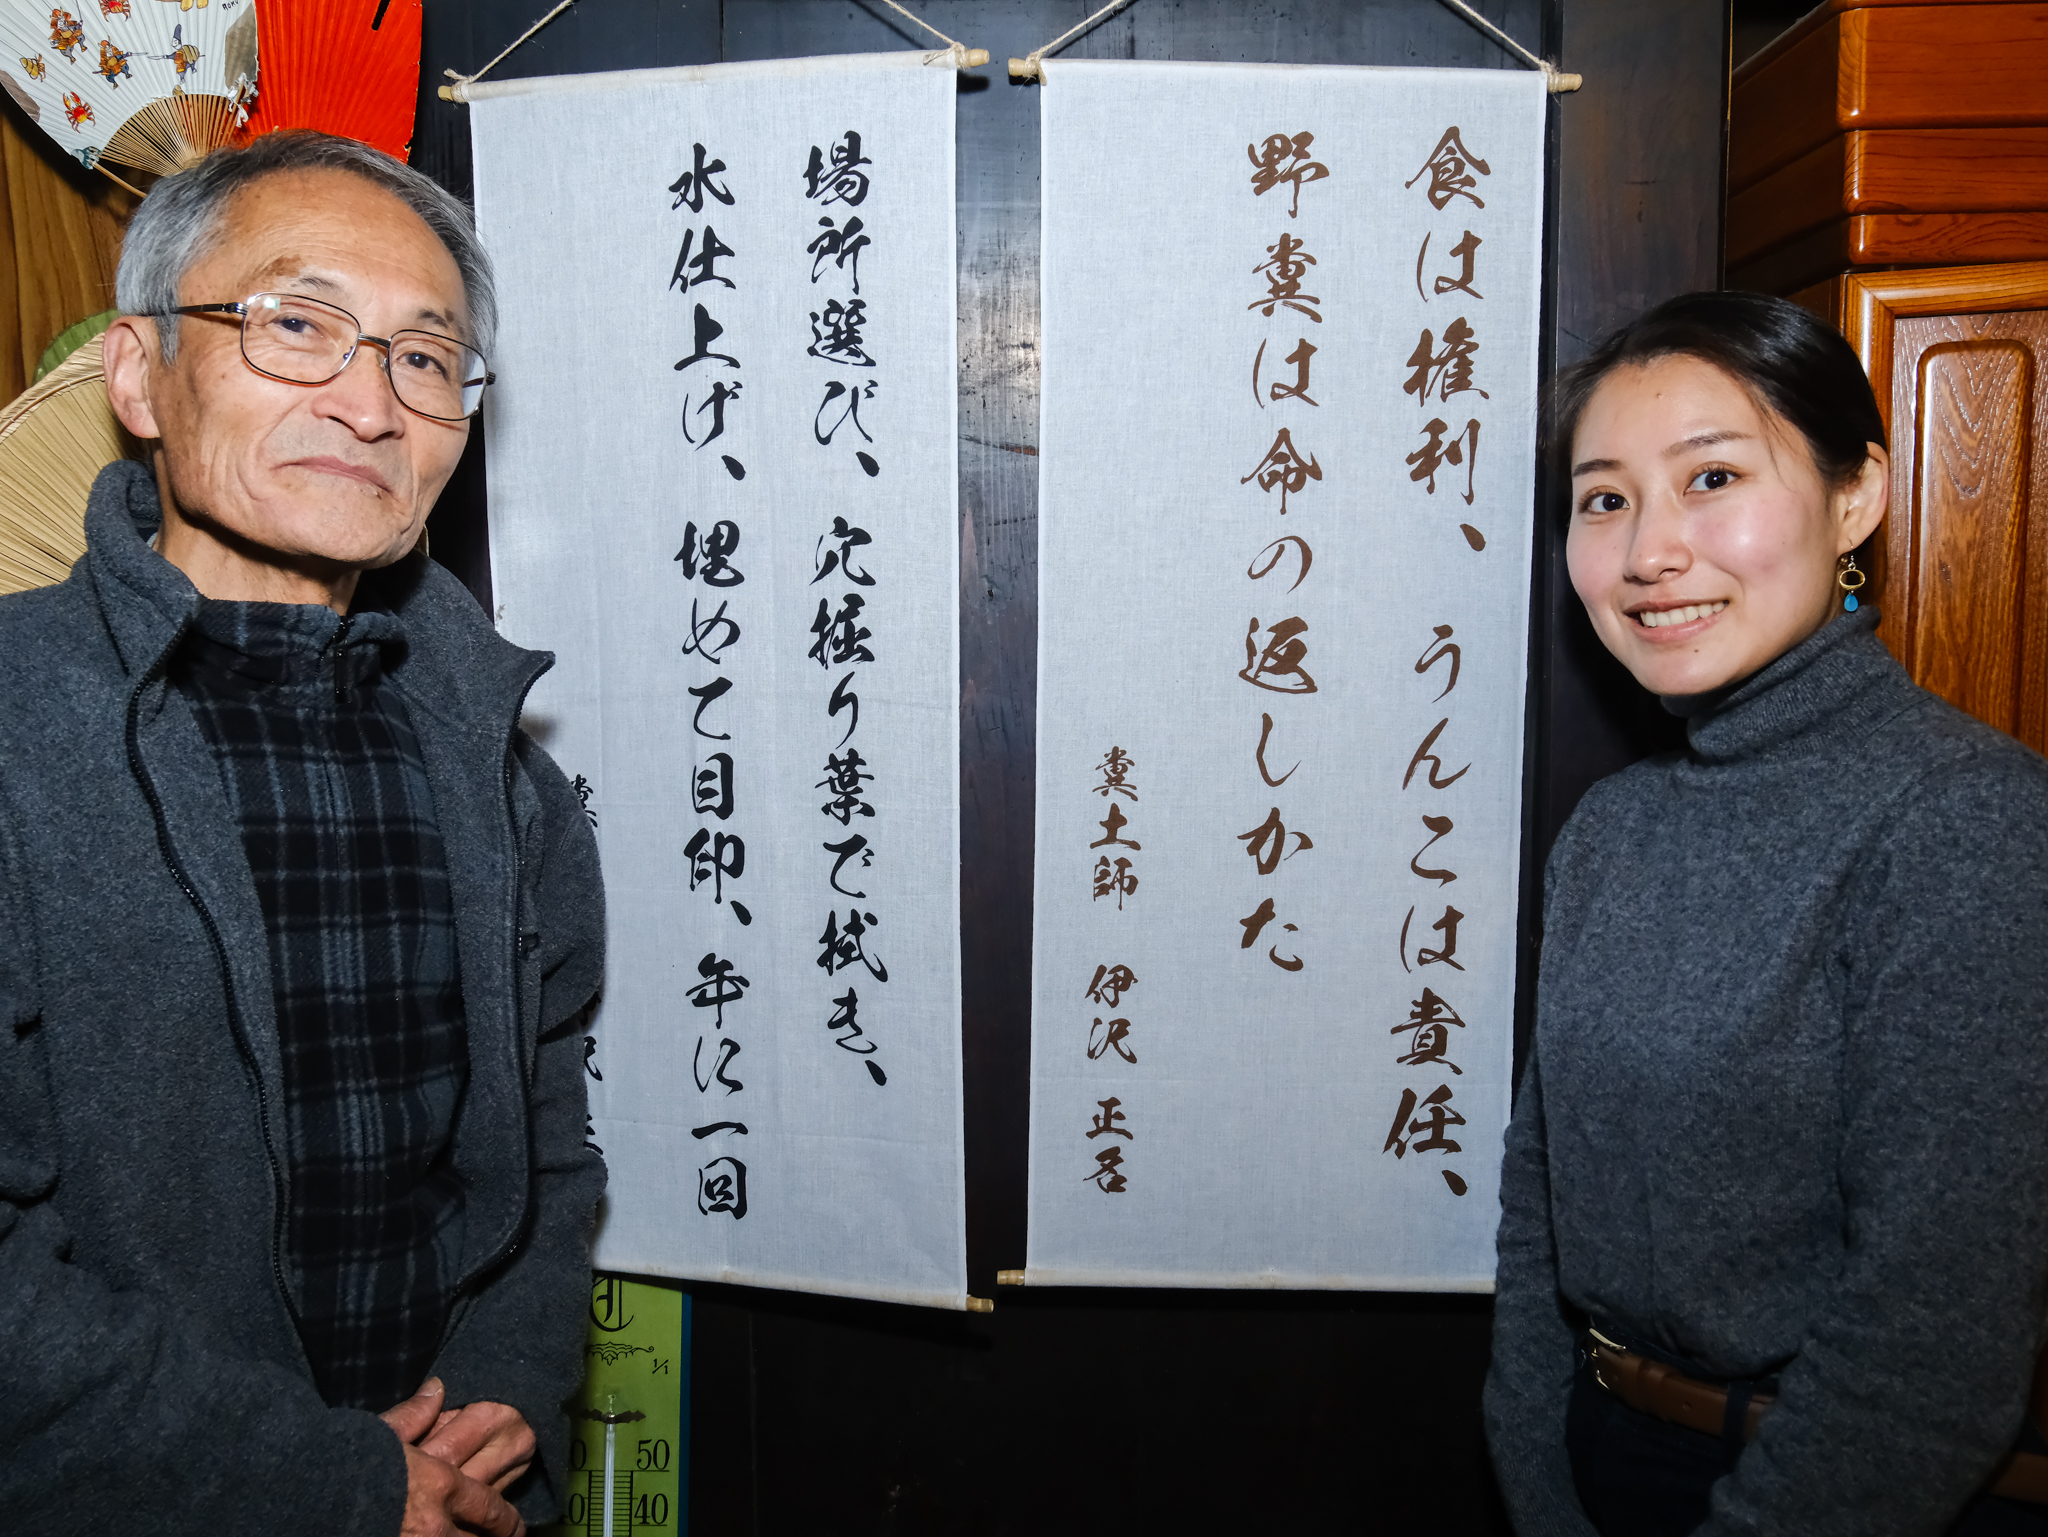 食は権利、うんこは責任、
野糞は命の返しかた
糞土師 伊沢 正名
場所選び、穴掘り葉で拭き、
水仕上げ、埋めて目印、年に一回
糞
沢
50
40